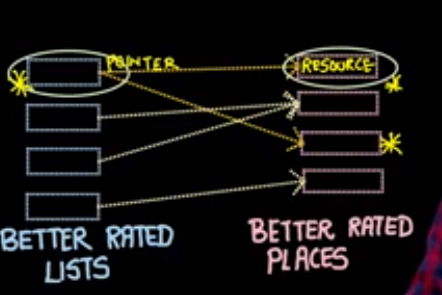 POINTER
RESOURCE
BETTER RATED
LISTS
BETTER RATED
PLACES